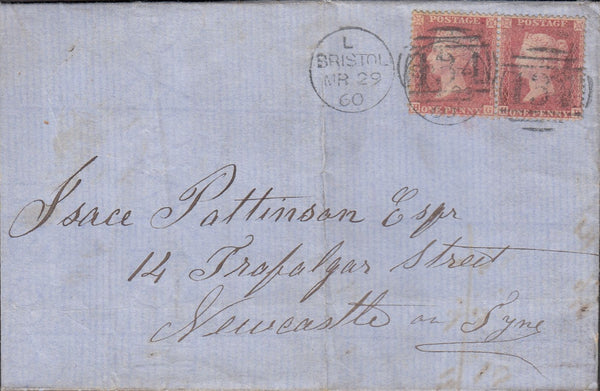 L
BRISTOL
MR 29
60
POSTAGE
ONE PENNY
POSTAGE
ONE PENNY
Isace Pattinson Esqr
14 Trafalgar Street
Newcastle on Tyne